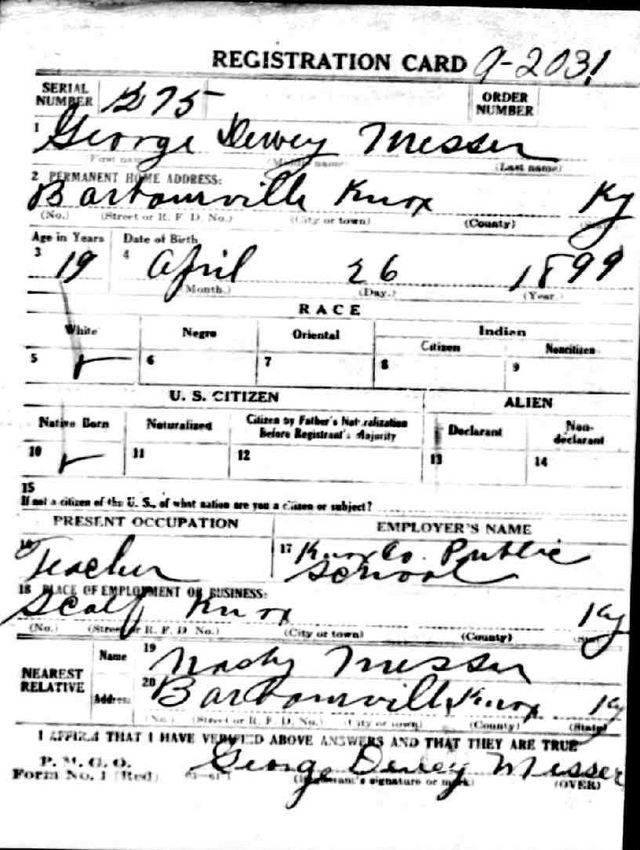 REGISTRATION CARD 9-2031
SERIAL NUMBER 1275 ORDER NUMBER
1 George Dewey Messer
First name (Middle name) (Last name)
2 PERMANENT HOME ADDRESS:
Barbourville Knox Ky
(No.) (Street or R. F. D. No.) (City or town) (County)
Age in Years Date of Birth
3 19 4 April 26 1899
(Month.) (Day.) (Year.)
RACE
White Negro Oriental Indian
Citizen Noncitizen
5 6 7 8 9
U. S. CITIZEN ALIEN
Native Born Naturalized Citizen by Father's Naturalization Before Registrant's Majority Declarant Non-declarant
10 11 12 13 14
15
If not a citizen of the U. S., of what nation are you a citizen or subject?
PRESENT OCCUPATION EMPLOYER'S NAME
16 Teacher 17 Knox Co. Public School
18 PLACE OF EMPLOYMENT OR BUSINESS:
Scalf Knox Ky
(No.) (Street or R. F. D. No.) (City or town) (County) (State)
NEAREST RELATIVE Name 19 Messer
Address 20 Barbourville Knox Ky
(No.) (Street or R. F. D. No.) (City or town) (County) (State)
I AFFIRM THAT I HAVE VERIFIED ABOVE ANSWERS AND THAT THEY ARE TRUE
P. M. G. O.
Form No. 1 (Red) George Dewey Messer
(Registrant's signature or mark) (OVER)